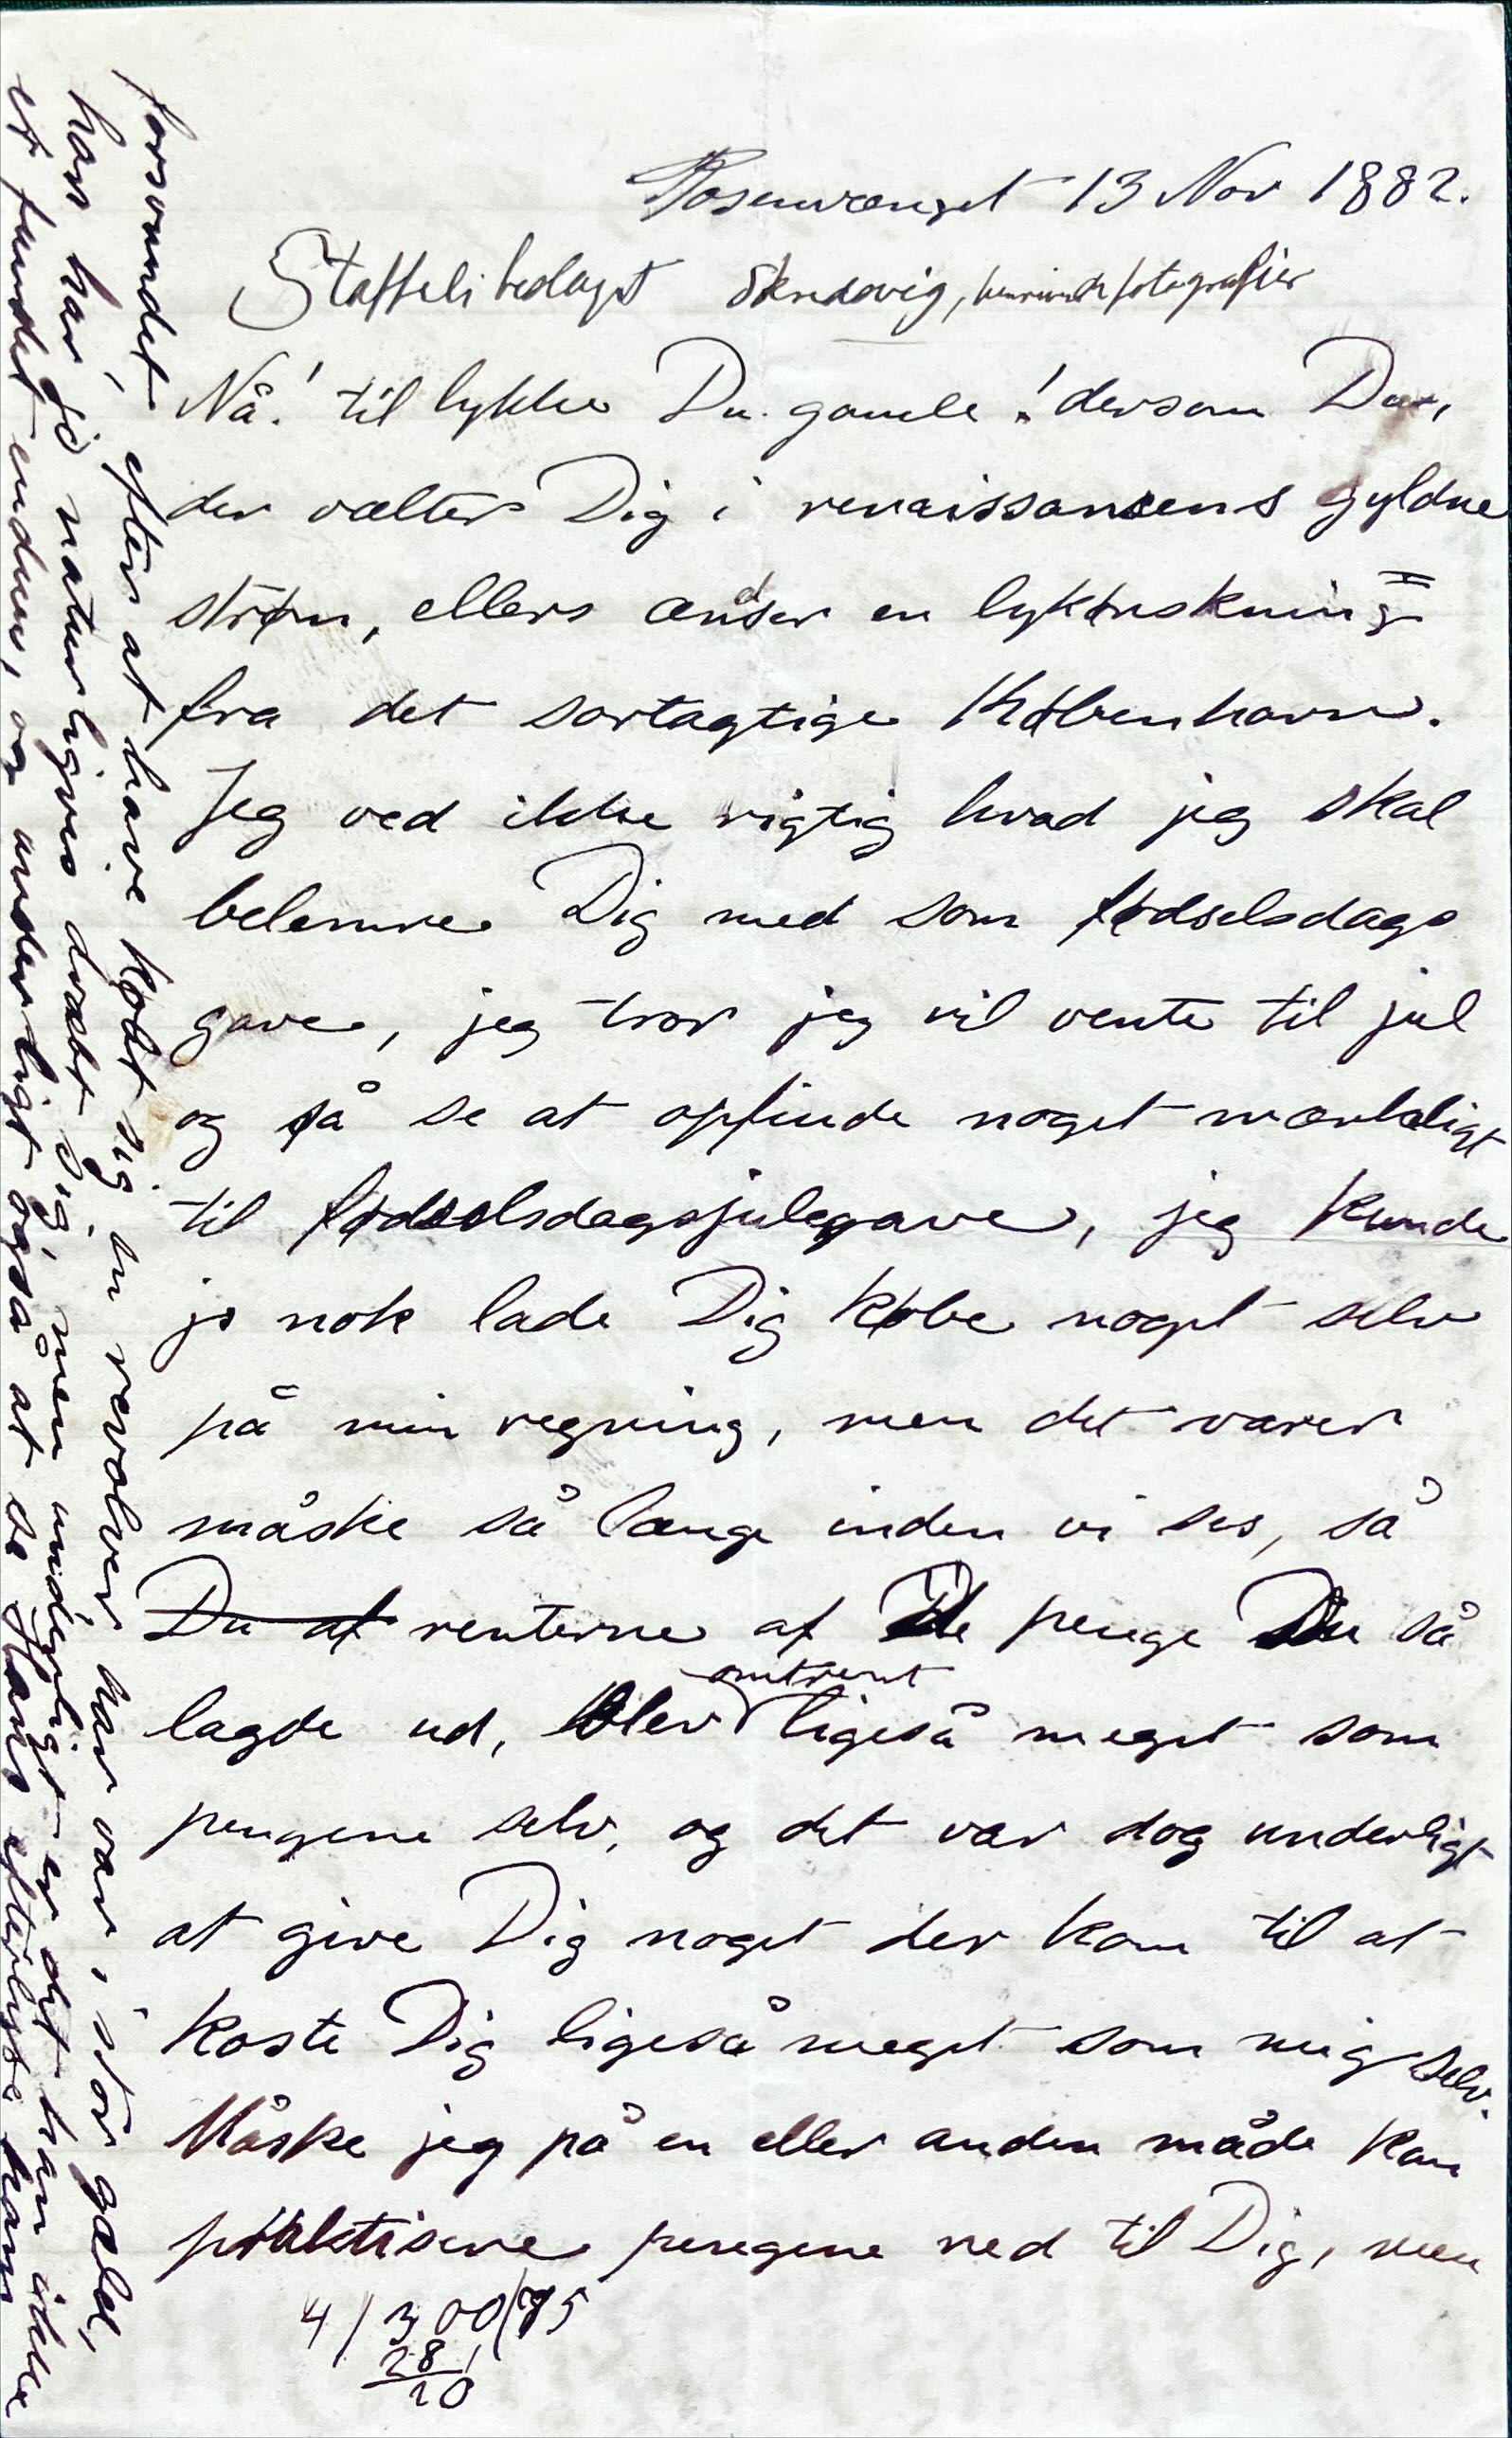 Rosenvænget 13 Nov 1882.
Staffeli betagt Skredsvig, henrivende fotografier
Nå! til lykke Du gamle! dersom Du,
der vælter Dig i renaissancens gyldne
strøm, ellers ændser en lykønskning
fra det sortagtige København.
Jeg ved ikke rigtig hvad jeg skal
belemre Dig med som fødselsdags
gave, jeg tror jeg vil vente til jul
og så se at opfinde noget mærkeligt
til fødselsdagsjulegave, jeg kunde
jo nok lade Dig købe noget selv
på min regning, men det varer
måske så længe inden vi ses, så
Du af renterne af De penge Du så
omtrent
lagde ud, blev ligeså meget som
pengene selv, og det var dog underligt
at give Dig noget der kom til at
koste Dig ligeså meget som mig selv.
Måske jeg på en eller anden måde kan
praktisere pengene ned til Dig, men
4/300/75
28
20
forsvundet efter at have købt sig en revolver, han var i stor gæld,
han har jo naturligvis dræbt sig, men underligt er det han ikke
er fundet endnu, og underligt også at se Hans efterlyse ham